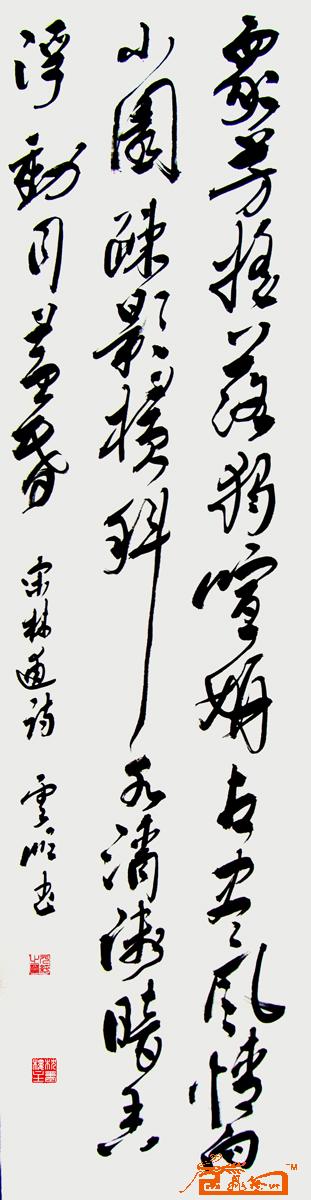 眾芳搖落獨喧妍占盡風情向
小園疎影橫斜水清淺暗香
浮動月黃昏 宋林逋詩 雲書